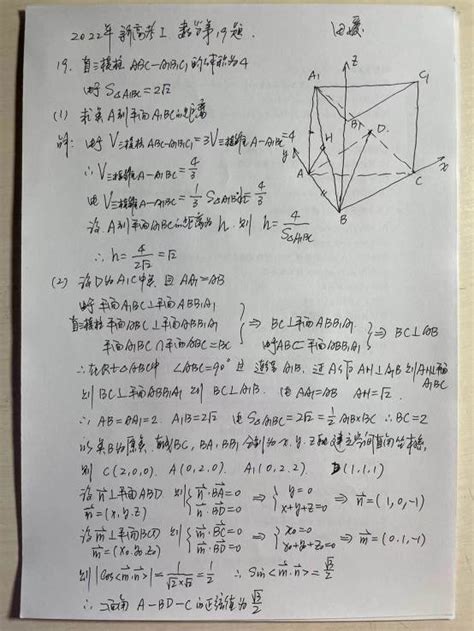 2022年新高考I 数学第19题.
19. 直三棱柱 ABC-A₁B₁C₁ 的体积为4
S△A₁BC=2√2
(1) 求点A到平面A₁BC的距离
解: V三棱柱ABC-A₁B₁C₁=3V三棱锥A-A₁BC=4
∴ V三棱锥A-A₁BC=4/3
V三棱锥A-A₁BC=1/3 S△A₁BC·h=4/3
设A到平面A₁BC的距离为h. 则 h=4/S△A₁BC
∴ h=4/2√2=√2
(2) 设D为A₁C中点. 且AA₁=AB
平面A₁BC⊥平面ABB₁A₁
直三棱柱 平面ABC⊥平面ABB₁A₁
平面A₁BC∩平面ABC=BC
⇒ BC⊥平面ABB₁A₁
⇒ BC⊥AB
∴ 在Rt△ABC中 ∠ABC=90° 连结A₁B. 过A作AH⊥A₁B 则AH⊥平面A₁BC
则 BC⊥平面ABB₁A₁ 则 BC⊥A₁B. 由AA₁=AB AH=√2.
∴ AB=AA₁=2. A₁B=2√2 S△A₁BC=2√2=1/2 A₁B×BC ∴BC=2
以点B为原点. BC, BA, BB₁ 分别为x. y. z轴建立空间直角坐标系,
则 C(2,0,0). A(0,2,0). A₁(0,2,2). D(1,1,1)
设n⊥平面ABD 则 {n·BA=0 ⇒ {y=0 ⇒ n=(1,0,-1)
n=(x,y,z) n·BD=0 x+y+z=0
设m⊥平面BCD 则 {m·BC=0 ⇒ {x₀=0 ⇒ m=(0,1,-1)
m=(x₀,y₀,z₀) m·BD=0 x₀+y₀+z₀=0
则 |cos<m·n>|=1/√2×√2=1/2 ∴ sin<m·n>=√3/2
∴ 二面角 A-BD-C的正弦值为√3/2
A₁
z
C₁
B₁
D
H
y
A
C
x
B